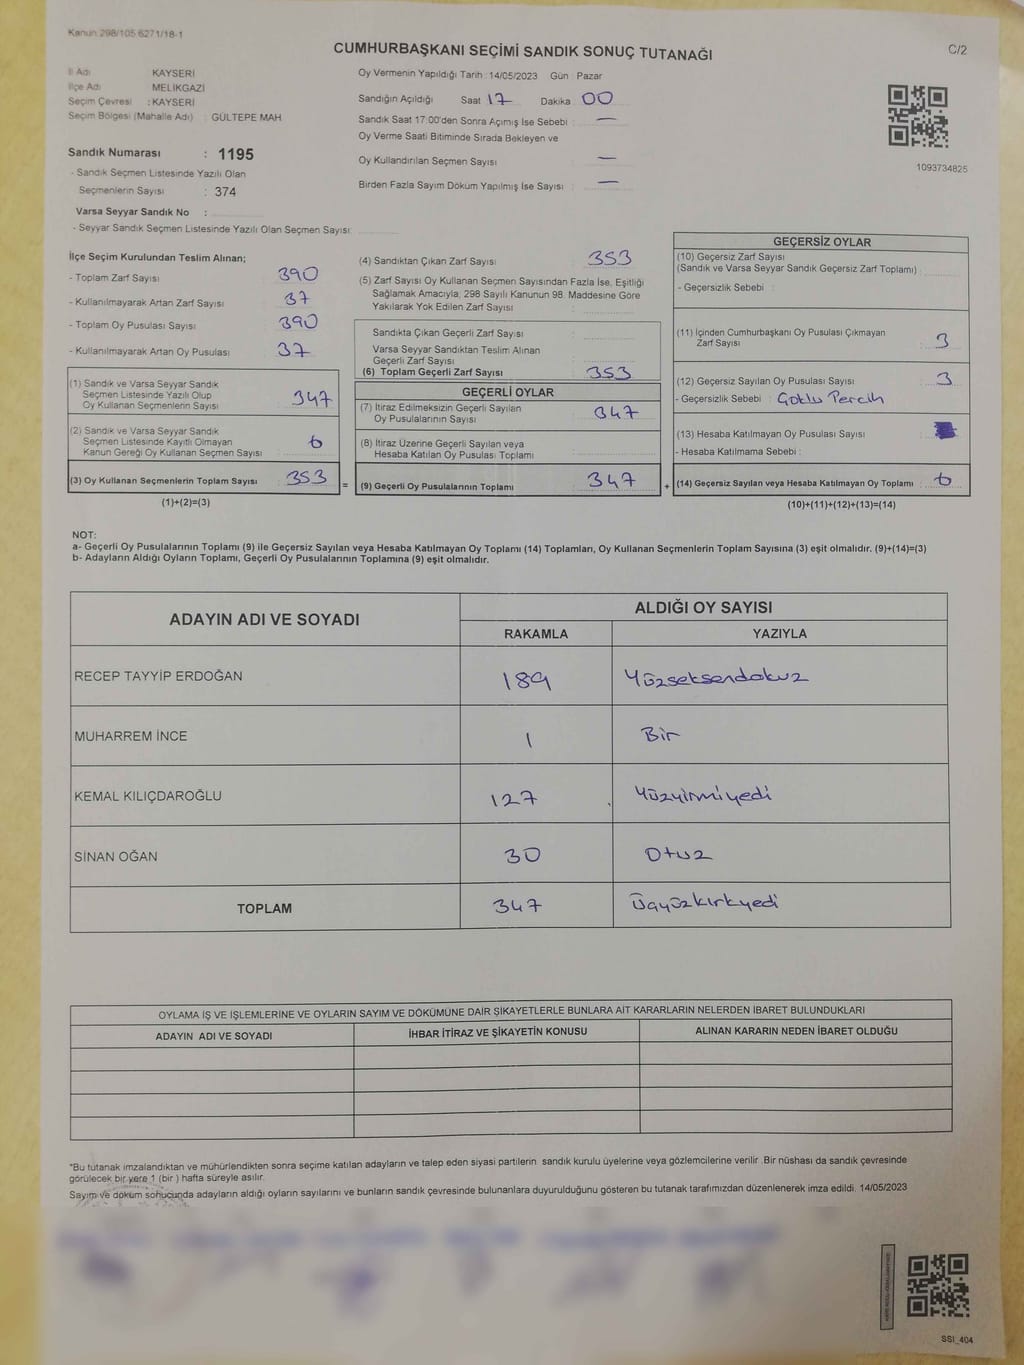 Kanun 298/105 6271/18-1
CUMHURBAŞKANI SEÇİMİ SANDIK SONUÇ TUTANAĞI
C/2
İl Adı KAYSERİ
İlçe Adı MELİKGAZİ
Seçim Çevresi : KAYSERİ
Seçim Bölgesi (Mahalle Adı) : GÜLTEPE MAH.
Sandık Numarası : 1195
- Sandık Seçmen Listesinde Yazılı Olan
Seçmenlerin Sayısı : 374
Varsa Seyyar Sandık No :
- Seyyar Sandık Seçmen Listesinde Yazılı Olan Seçmen Sayısı:
Oy Vermenin Yapıldığı Tarih : 14/05/2023 Gün : Pazar
Sandığın Açıldığı Saat 17 Dakika 00
Sandık Saat 17:00'den Sonra Açımış İse Sebebi : —
Oy Verme Saati Bitiminde Sırada Bekleyen ve
Oy Kullandırılan Seçmen Sayısı —
Birden Fazla Sayım Döküm Yapılmış İse Sayısı : —
1093734825
İlçe Seçim Kurulundan Teslim Alınan;
- Toplam Zarf Sayısı 390
- Kullanılmayarak Artan Zarf Sayısı 37
- Toplam Oy Pusulası Sayısı 390
- Kullanılmayarak Artan Oy Pusulası 37
(1) Sandık ve Varsa Seyyar Sandık
Seçmen Listesinde Yazılı Olup
Oy Kullanan Seçmenlerin Sayısı 347
(2) Sandık ve Varsa Seyyar Sandık
Seçmen Listesinde Kayıtlı Olmayan
Kanun Gereği Oy Kullanan Seçmen Sayısı 6
(3) Oy Kullanan Seçmenlerin Toplam Sayısı 353
(1)+(2)=(3)
=
(4) Sandıktan Çıkan Zarf Sayısı 353
(5) Zarf Sayısı Oy Kullanan Seçmen Sayısından Fazla İse, Eşitliği
Sağlamak Amacıyla, 298 Sayılı Kanunun 98. Maddesine Göre
Yakılarak Yok Edilen Zarf Sayısı
Sandıkta Çıkan Geçerli Zarf Sayısı
Varsa Seyyar Sandıktan Teslim Alınan
Geçerli Zarf Sayısı
(6) Toplam Geçerli Zarf Sayısı 353
GEÇERLİ OYLAR
(7) İtiraz Edilmeksizin Geçerli Sayılan
Oy Pusulalarının Sayısı 347
(8) İtiraz Üzerine Geçerli Sayılan veya
Hesaba Katılan Oy Pusulası Toplamı
(9) Geçerli Oy Pusulalarının Toplamı 347
+
GEÇERSİZ OYLAR
(10) Geçersiz Zarf Sayısı
(Sandık ve Varsa Seyyar Sandık Geçersiz Zarf Toplamı)
- Geçersizlik Sebebi :
(11) İçinden Cumhurbaşkanı Oy Pusulası Çıkmayan
Zarf Sayısı 3
(12) Geçersiz Sayılan Oy Pusulası Sayısı 3
- Geçersizlik Sebebi : Çoklu Percih
(13) Hesaba Katılmayan Oy Pusulası Sayısı
- Hesaba Katılmama Sebebi :
(14) Geçersiz Sayılan veya Hesaba Katılmayan Oy Toplamı 6
(10)+(11)+(12)+(13)=(14)
NOT:
a- Geçerli Oy Pusulalarının Toplamı (9) ile Geçersiz Sayılan veya Hesaba Katılmayan Oy Toplamı (14) Toplamları, Oy Kullanan Seçmenlerin Toplam Sayısına (3) eşit olmalıdır. (9)+(14)=(3)
b- Adayların Aldığı Oyların Toplamı, Geçerli Oy Pusulalarının Toplamına (9) eşit olmalıdır.
ADAYIN ADI VE SOYADI
ALDIĞI OY SAYISI
RAKAMLA YAZIYLA
RECEP TAYYİP ERDOĞAN 189 Yüzseksendokuz
MUHARREM İNCE 1 Bir
KEMAL KILIÇDAROĞLU 127 Yüzyirmiyedi
SİNAN OĞAN 30 Otuz
TOPLAM 347 Üçyüzkırkyedi
OYLAMA İŞ VE İŞLEMLERİNE VE OYLARIN SAYIM VE DÖKÜMÜNE DAİR ŞİKAYETLERLE BUNLARA AİT KARARLARIN NELERDEN İBARET BULUNDUKLARI
ADAYIN ADI VE SOYADI İHBAR İTİRAZ VE ŞİKAYETİN KONUSU ALINAN KARARIN NEDEN İBARET OLDUĞU
*Bu tutanak imzalandıktan ve mühürlendikten sonra seçime katılan adayların ve talep eden siyasi partilerin sandık kurulu üyelerine veya gözlemcilerine verilir. Bir nüshası da sandık çevresinde
görülecek bir yere 1 (bir ) hafta süreyle asılır.
Sayım ve döküm sonucunda adayların aldığı oyların sayılarını ve bunların sandık çevresinde bulunanlara duyurulduğunu gösteren bu tutanak tarafımızdan düzenlenerek imza edildi. 14/05/2023
SSI_404